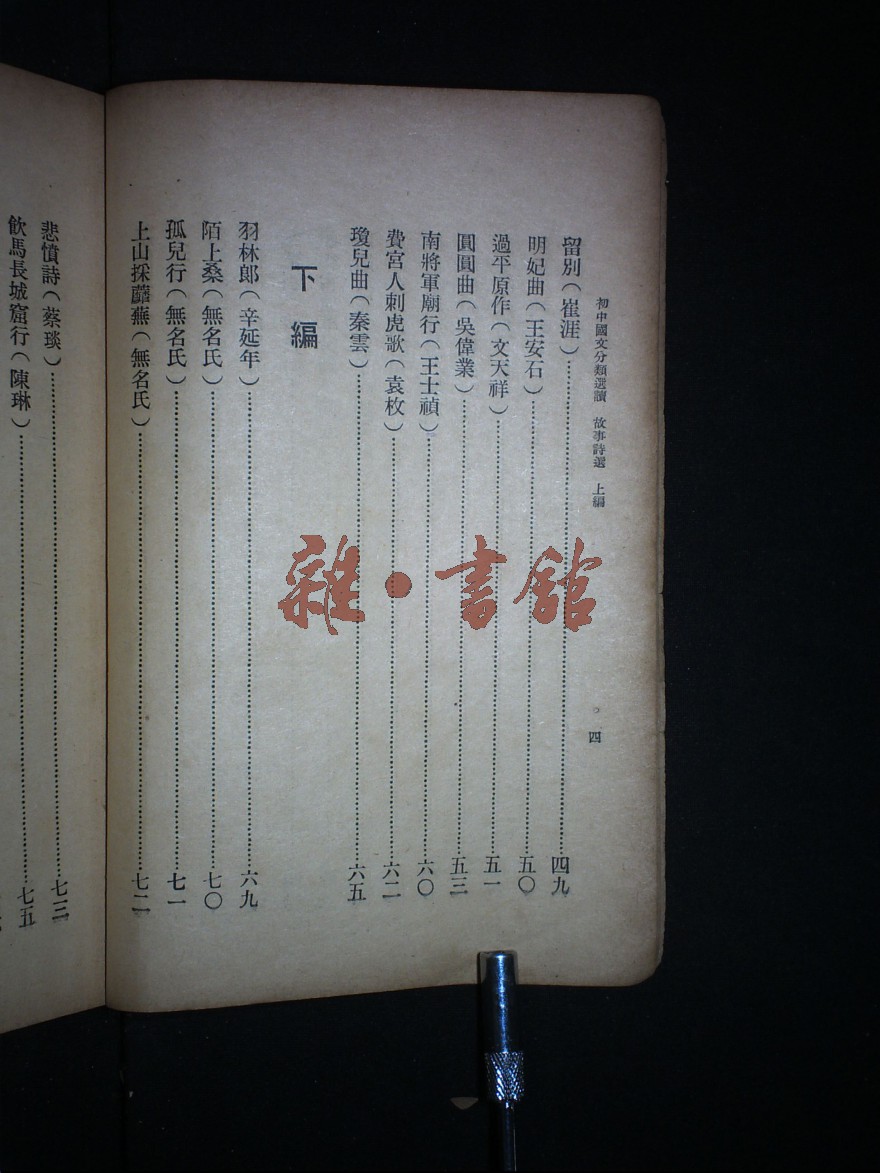 初中國文分類選讀　故事詩選　上編
四
留別（崔涯）……四九
明妃曲（王安石）……五〇
過平原作（文天祥）……五一
圓圓曲（吳偉業）……五三
南將軍廟行（王士禎）……六〇
費宮人刺虎歌（袁枚）……六二
瓊兒曲（秦雲）……六五
下編
羽林郎（辛延年）……六九
陌上桑（無名氏）……七〇
孤兒行（無名氏）……七一
上山採蘼蕪（無名氏）……七二
悲憤詩（蔡琰）……七三
飲馬長城窟行（陳琳）……七五
雜・書館